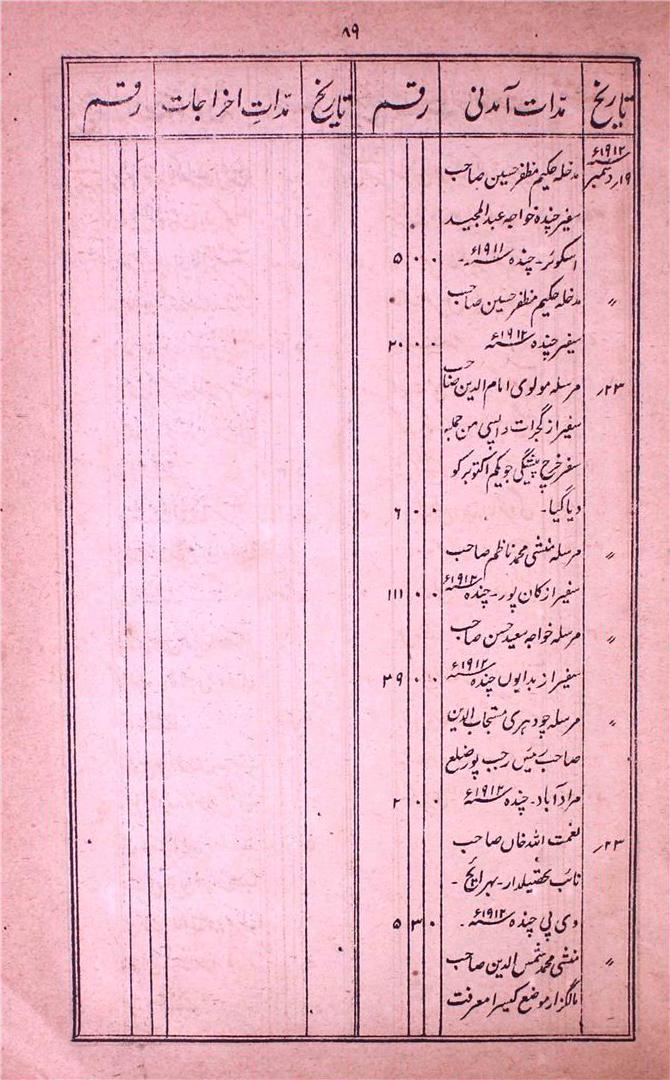 ۸۹
تاریخ مدّات آمدنی رقم تاریخ مدّاتِ اخراجات رقم
۱۹۱۲ء
۱۹؍دسمبر مدخلہ حکیم مظفر حسین صاحب
سفیر چندہ خواجہ عبدالمجید
اسکوئر۔ چندہ سنہ ۱۹۱۱ء۔ ۰ ۰ ۵
〃 مدخلہ حکیم مظفر حسین صاحب
سفیر چندہ سنہ ۱۹۱۲ء ۰ ۰ ۲۰
۲۳؍ مرسلہ مولوی امام الدین صاحب
سفیر از گجرات واپسی من جملہ
سفر خرچ پیشگی جو یکم اکتوبر کو
دیا گیا۔ ۰ ۰ ۶
〃 مرسلہ منشی محمد ناظم صاحب
سفیر از کان پور۔ چندہ سنہ ۱۹۱۲ء ۰ ۰ ۱۱۱
〃 مرسلہ خواجہ سعید حسن صاحب
سفیر از بدایوں چندہ سنہ ۱۹۱۲ء ۰ ۰ ۳۹
〃 مرسلہ چودہری مستجاب الدین
صاحب رئیس رجب پور ضلع
مرادآباد۔ چندہ سنہ ۱۹۱۲ء ۰ ۰ ۲
۲۳؍ نعمت اللہ خاں صاحب
نائب تحصیلدار۔ بہرایچ۔
وی پی چندہ سنہ ۱۹۱۲ء۔ ۰ ۳ ۵
〃 منشی محمد شمس الدین صاحب
مالگزار موضع کیسرا معرفت